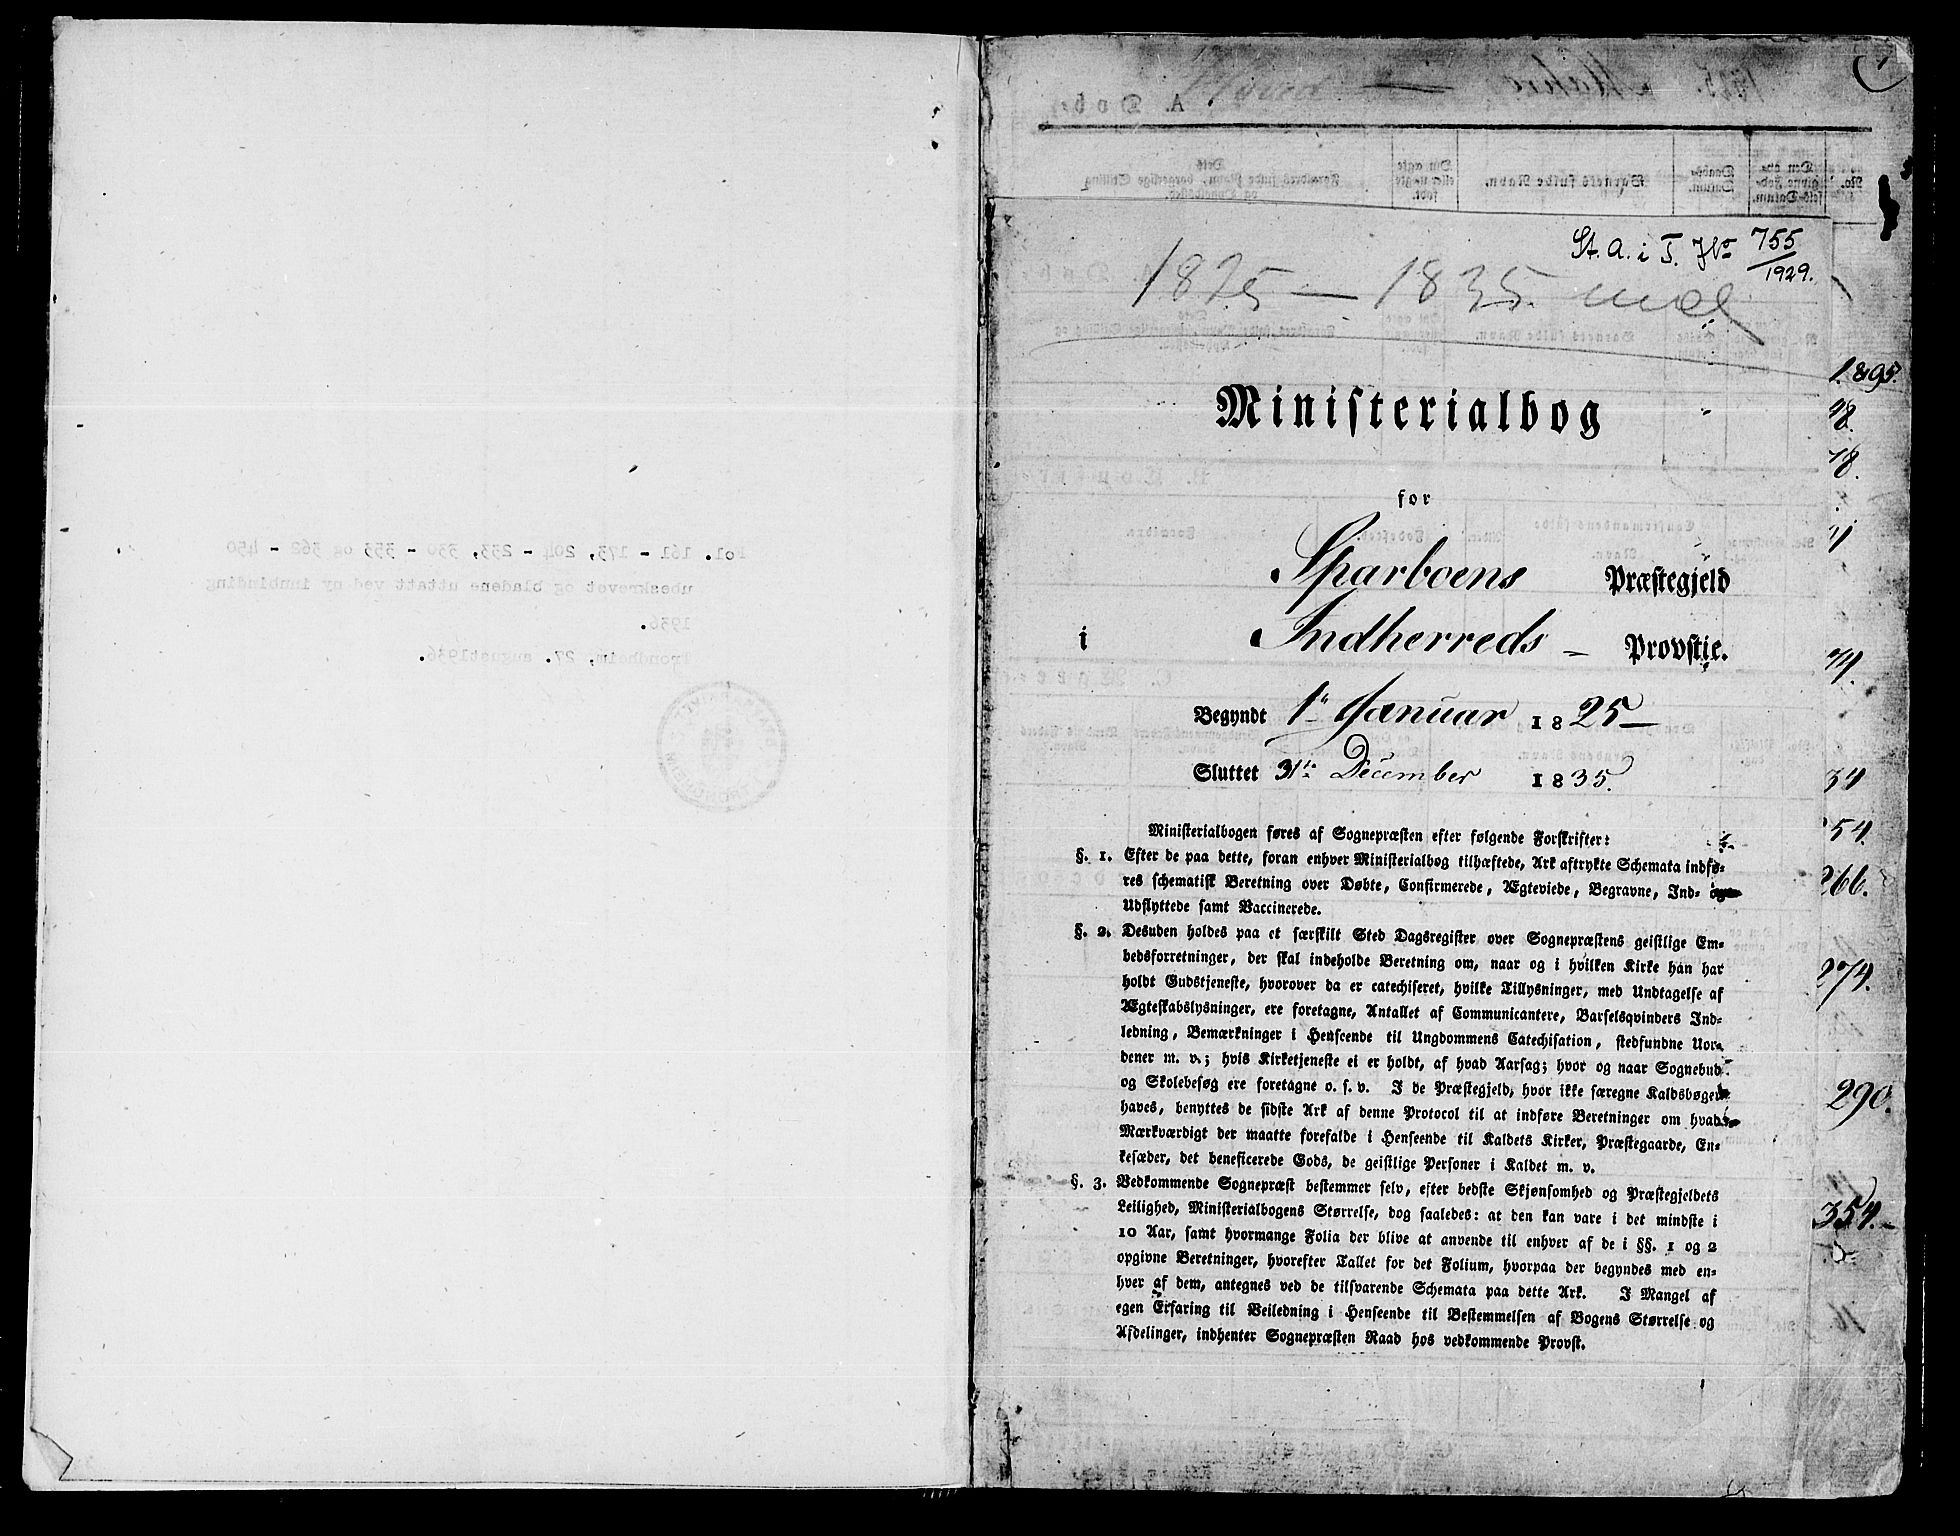 Fol. 161 - 173, 204 - 233, 330 - 353 og 362 - 450
ubeskrevet og bladene uttatt ved ny innbinding
1936.
Trondheim, 27. august 1936.
St. A. i T. No 755/1929.
1825 — 1835. incl
Ministerialbog
for
Sparboens Præstegjeld
i Indherreds - Provstie.
Begyndt 1te Januar 1825 —
Sluttet 31te December 1835.
Ministerialbogen føres af Sognepræsten efter følgende Forskrifter:
§. 1. Efter de paa dette, foran enhver Ministerialbog tilhæftede, Ark aftrykte Schemata indfø-
res schematisk Beretning over Døbte, Confirmerede, Ægteviede, Begravne, Ind- og
Udflyttede samt Vaccinerede.
§. 2. Desuden holdes paa et særskilt Sted Dagsregister over Sognepræstens geistlige Em-
bedsforretninger, der skal indeholde Beretning om, naar og i hvilken Kirke han har
holdt Gudstjeneste, hvorover da er catechiseret, hvilke Tillysninger, med Undtagelse af
Ægteskabslysninger, ere foretagne, Antallet af Communicantere, Barselqvinders Ind-
ledning, Bemærkninger i Henseende til Ungdommens Catechisation, stedfundne Uor-
dener m. v.; hvis Kirketjeneste ei er holdt, af hvad Aarsag; hvor og naar Sognebud-
og Skolebesøg ere foretagne o. s. v. I de Præstegjeld, hvor ikke særegne Kaldsbøger
haves, benyttes de sidste Ark af denne Protocol til at indføre Beretninger om hvad
Mærkværdigt der maatte forefalde i Henseende til Kaldets Kirker, Præstegaarde, En-
kesæder, det beneficerede Gods, de geistlige Personer i Kaldet m. v.
§. 3. Vedkommende Sognepræst bestemmer selv, efter bedste Skjønsomhed og Præstegjeldets
Leilighed, Ministerialbogens Størrelse, dog saaledes: at den kan vare i det mindste i
10 Aar, samt hvormange Folia der blive at anvende til enhver af de i §§. 1 og 2
opgivne Beretninger, hvorefter Tallet for det Folium, hvorpaa der begyndes med en-
hver af dem, antegnes ved de tilsvarende Schemata paa dette Ark. I Mangel af
egen Erfaring til Veiledning i Henseende til Bestemmelsen af Bogens Størrelse og
Afdelinger, indhenter Sognepræsten Raad hos vedkommende Provst.
34
54.
266.
274.
290.
354.